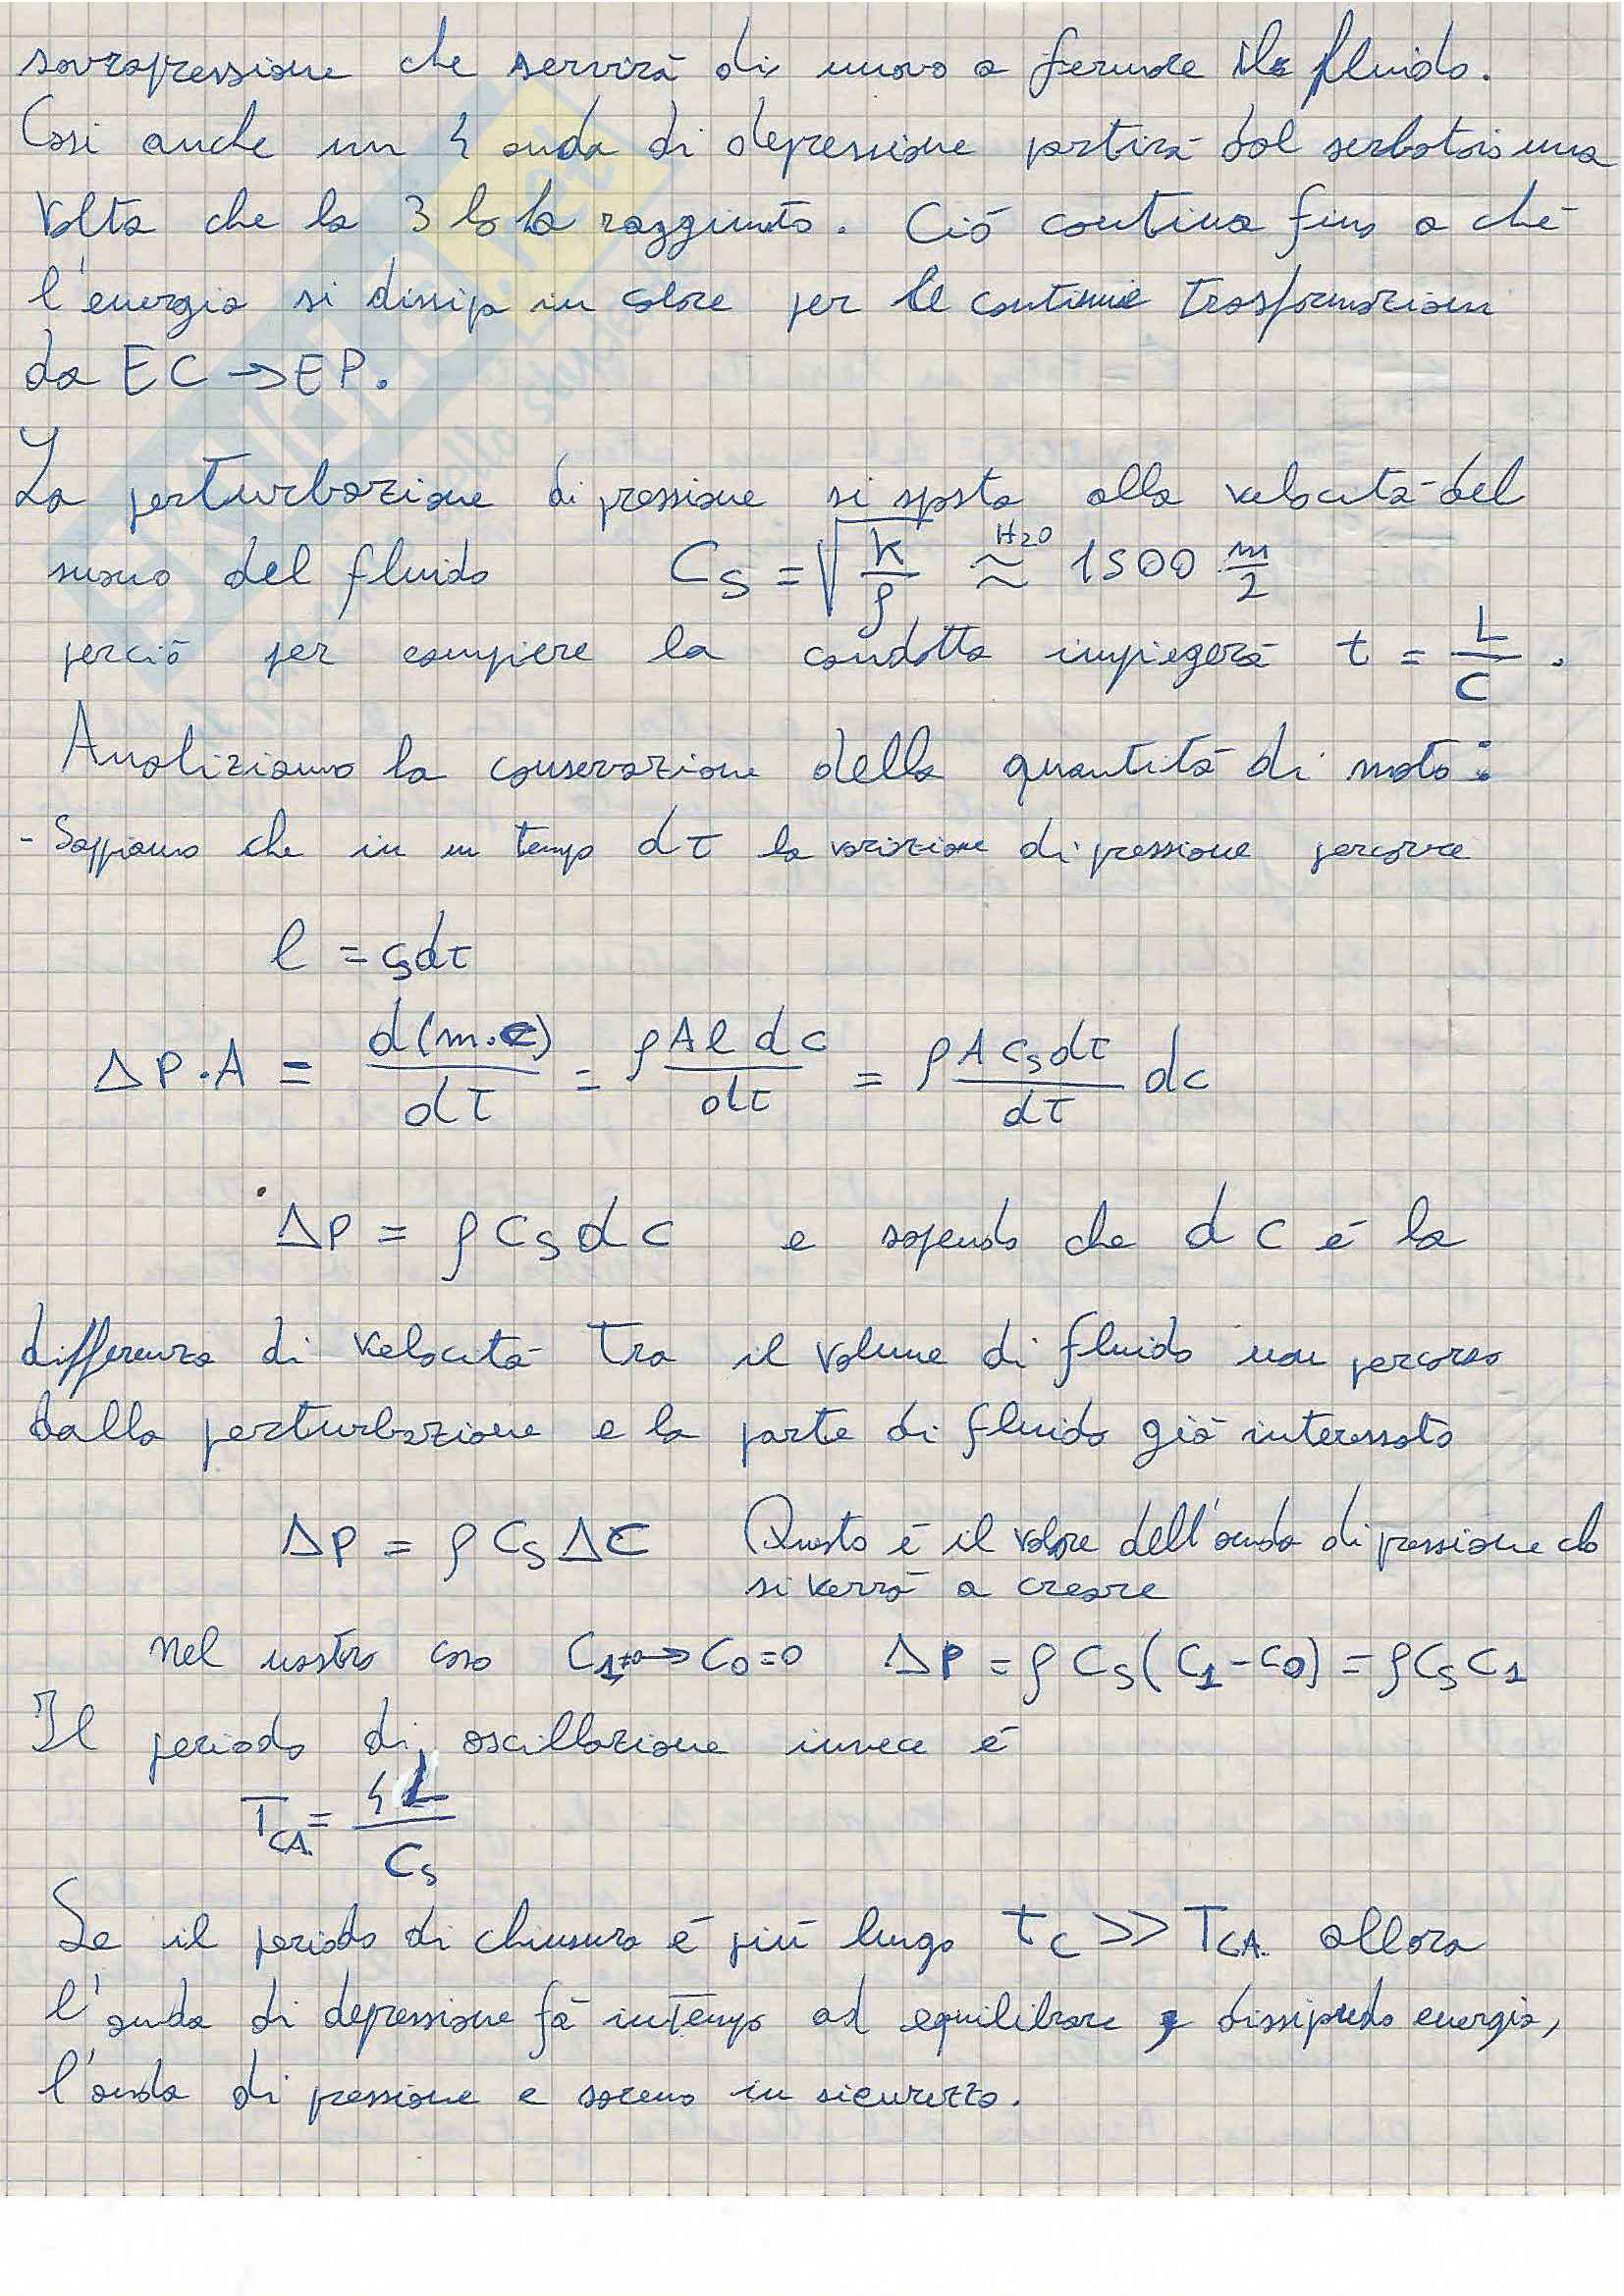 sovrapressione che servirà di nuovo a fermare il fluido.
Così anche un 4 onda di depressione partirà dal serbatoio una
volta che la 3 lo ha raggiunto. Ciò continua fino a che
l'energia si dissipa in calore per le continue trasformazioni
da EC → EP.
La perturbazione di pressione si sposta alla velocità del
suono del fluido Cs = √(k/ρ) ≈ H2O 1500 m/2
perciò per compiere la condotta impiegerà t = L/C .
Analiziamo la conservazione della quantità di moto:
- Sappiamo che in un tempo dτ la variazione di pressione percorre
l = Cs dτ
ΔP·A = d(m·c)/dτ = ρ A l dc/dτ = ρ A Cs dτ/dτ dc
ΔP = ρ Cs dc e sapendo che dc è la
differenza di velocità tra il volume di fluido non percorso
dalla perturbazione e la parte di fluido già interessato
ΔP = ρ Cs ΔC Questo è il valore dell'onda di pressione che
si verrà a creare
nel nostro caso C1≠0 → C0=0 ΔP = ρ Cs (C1 - C0) = ρ Cs C1
Il periodo di oscillazione invece è
TCA. = 4L/Cs
Se il periodo di chiusura è più lungo τc >> TCA. allora
l'onda di depressione fà in tempo ad equilibrare, dissipando energia,
l'onda di pressione e saremo in sicurezza.